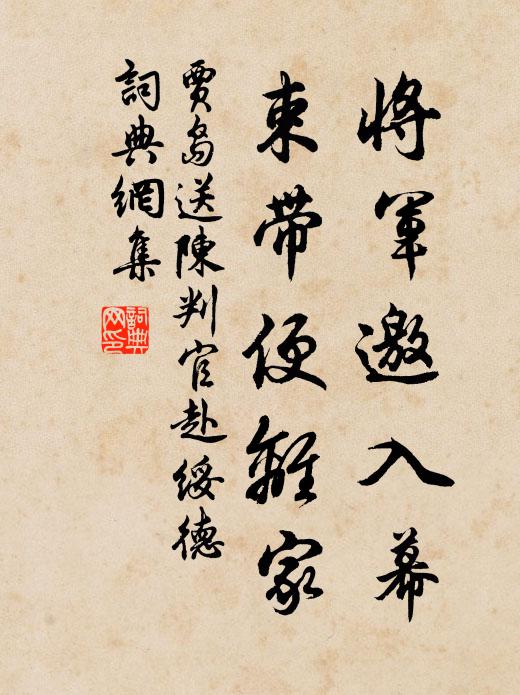 將軍邀入幕
束帶便離家
賈島送陳判官赴綏德
詞典網集
詞典网印